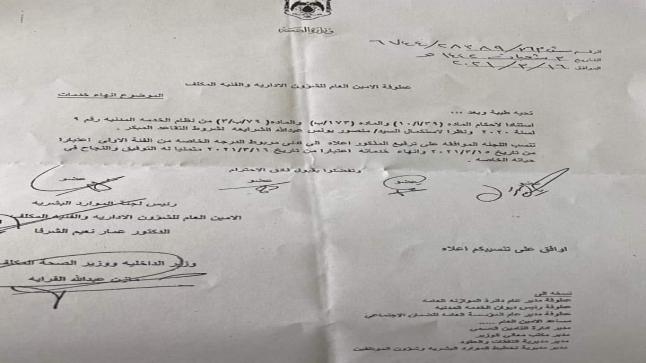 وزارة الصحة
الرقم
التاريخ
الموافق
عطوفة الامين العام للشؤون الاداريه والفنيه المكلف
الموضوع انهاء خدمات
تحيه طيبة وبعد ...
استنادا لاحكام الماده (١٠/أ/٣٩) والماده (١٧٣/ب) والماده (٧٦/ب/٣) من نظام الخدمه المدنيه رقم ٩
لسنة ٢٠٢٠ ونظرا لاستكمال السيد/ منصور يونس عبدالله الشرايعه لشروط التقاعد المبكر .
تنسب اللجنه الموافقه على ترفيع المذكور اعلاه الى ادنى مربوط الدرجة الخاصه من الفئة الاولى اعتبارا
من تاريخ ٢٠٢١/٣/١٥ وانهاء خدماته اعتبارا من تاريخ ٢٠٢١/٣/١٦ متمنيا له التوفيق والنجاح في
حياته الخاصه .
وتفضلوا بقبول فائق الاحترام
عضو عضو عضو عضو
رئيس لجنة الموارد البشريه
الامين العام للشؤون الاداريه والفنيه المكلف
الدكتور عمار نعيم الشرفا
اوافق على تنسيبكم اعلاه
وزير الداخليه ووزير الصحة المكلف
مازن عبدالله الفرايه
نسخه الى
عطوفة مدير عام دائرة الموازنه العامه
عطوفة رئيس ديوان الخدمه المدنيه
عطوفة مدير عام المؤسسة العامه للضمان الاجتماعي
مساعد الامين العام ......
مدير ادارة التامين الصحي
مدير مكتب معالي الوزير
مدير مديرية النفقات والعقود
مدير مديرية تخطيط الموارد البشريه وشؤون الموظفين